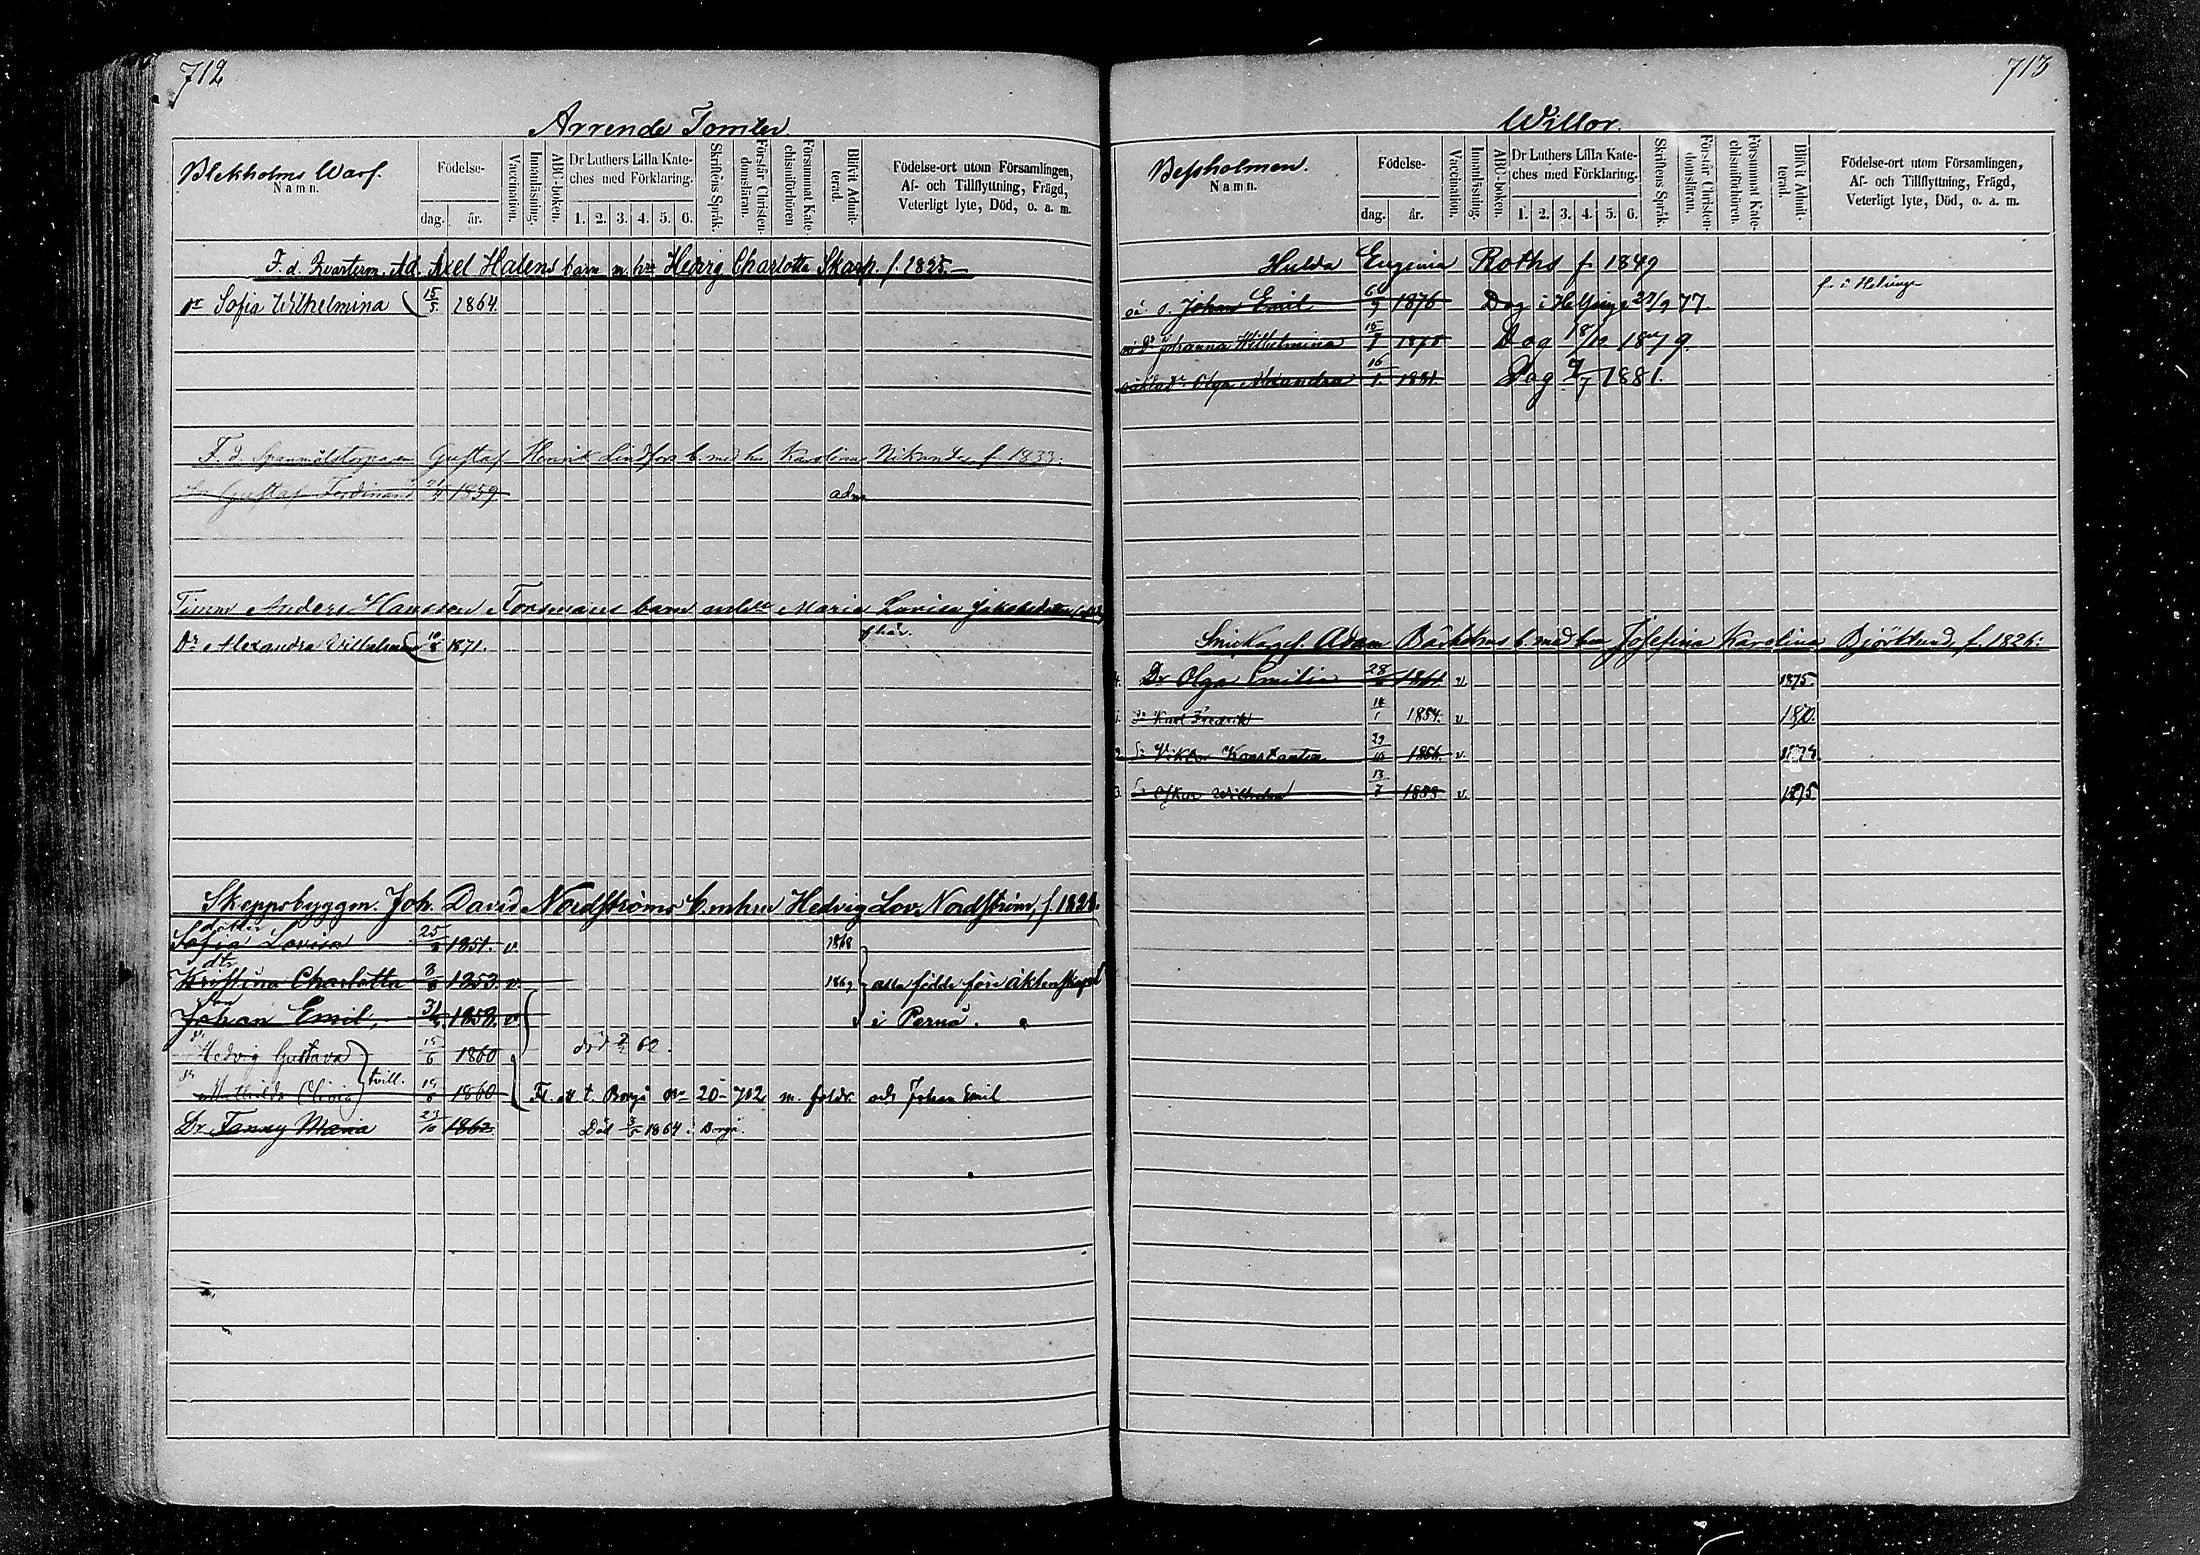 712
Arrende Tomter
Blekholms Warf.
Namn.
Födelse-
dag. år.
Vaccination.
Innanläsning.
ABC-boken.
Dr Luthers Lilla Kate-
ches med Förklaring.
1. 2. 3. 4. 5. 6.
Skriftens Språk.
Förstår Christen-
domsläran.
Försummat Kate-
chismiförhören
Blifvit Admit-
terad.
Födelse-ort utom Församlingen,
Af- och Tillflyttning, Frägd,
Veterligt lyte, Död, o. a. m.
F. d. Qvarterm. Ad. Axel Halens barn m. hu Hedvig Charlotta Skarp. f. 1825
Dr Sofia Wilhelmina 15/5. 1864.
F. d. Gustaf Henrik Lindfors b. med hu Karolina Nikander f. 1833.
Sn Gustaf Ferdinand 1859. adm
Timm Anders Hansson Forsmans barn Maria Lovisa
f här.
Dr Alexandra Vilhelmina 1871.
Skeppsbyggm. Joh. David Nordströms b. m hu Hedvig Lov. Nordström, f.
dotter
Sofia Lovisa 25 1851. v. 1868
dtr
Kristina Charlotta 1853. v. 1869 alla födde före äktenskapet
son
Johan Emil, 1858. v i Pernå.
dr Hedvig Gustava 15/6 1860 död 60.
tvill.
dr Mathilda Olivia 15/6 1860 Fl. att t. Borgå 20- 702 m. foldr. och Johan Emil
Dr Fanny Maria 23/10 1862 Död 1864 i Borgå.
713
Willor.
Bessholmen.
Namn.
Födelse-
dag. år.
Vaccination.
Innanläsning.
ABC-boken.
Dr Luthers Lilla Kate-
ches med Förklaring.
1. 2. 3. 4. 5. 6.
Skriftens Språk.
Förstår Christen-
domsläran.
Försummat Kate-
chismiförhören.
Blifvit Admit-
terad.
Födelse-ort utom Församlingen,
Af- och Tillflyttning, Frägd,
Veterligt lyte, Död, o. a. m.
Hulda Eugenia Roths f 1849
oä. s. Johan Emil 6/9 1876 Dog i Helsing 27/9 77. f. i Helsing
oä Dr Johanna Wilhelmina 15 Dog 18/12 1879.
Olga Alexandra 16/1. 1881. Dog 1881.
Adam b. med hu Josefina Karolina Björklund, f. 1826:
4. Dr Olga Emilia 28 1861. v. 1875.
1. Sn Karl Fredrik 14/1 1854. v 1870.
2. Sn Viktor Konstantin 29/10 1856. v.
3. Sn Oskar Wilhelm 13/7 v. 1875